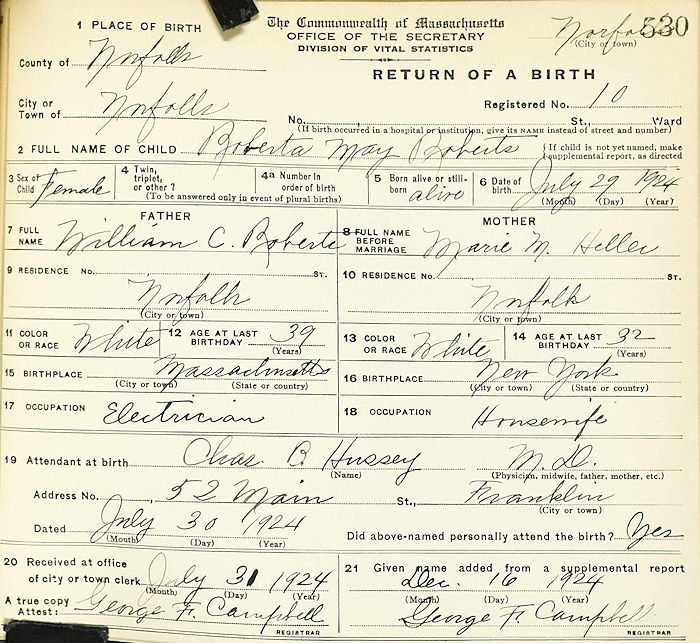 1 PLACE OF BIRTH The Commonwealth of Massachusetts Norfolk 530
OFFICE OF THE SECRETARY (City or town)
DIVISION OF VITAL STATISTICS
County of Norfolk
RETURN OF A BIRTH
City or Town of Norfolk Registered No. 10
No. St., Ward
(If birth occurred in a hospital or institution, give its NAME instead of street and number)
2 FULL NAME OF CHILD Roberta May Roberts { If child is not yet named, make supplemental report, as directed
3 Sex of Child Female 4 Twin, triplet, or other ? 4a Number in order of birth 5 Born alive or still-born alive 6 Date of birth July 29 1924
(To be answered only in event of plural births) (Month) (Day) (Year)
FATHER MOTHER
7 FULL NAME William C. Roberts 8 FULL NAME BEFORE MARRIAGE Marie M. Heller
9 RESIDENCE No. ST. 10 RESIDENCE No. ST.
Norfolk Norfolk
(City or town) (City or town)
11 COLOR OR RACE White 12 AGE AT LAST BIRTHDAY 39 (Years) 13 COLOR OR RACE White 14 AGE AT LAST BIRTHDAY 32 (Years)
15 BIRTHPLACE Massachusetts 16 BIRTHPLACE New York
(City or town) (State or country) (City or town) (State or country)
17 OCCUPATION Electrician 18 OCCUPATION Housewife
19 Attendant at birth Chas. B. Hussey M.D.
(Name) (Physician, midwife, father, mother, etc.)
Address No. 52 Main St., Franklin
(City or town)
Dated July 30 1924 Did above-named personally attend the birth? Yes
(Month) (Day) (Year)
20 Received at office of city or town clerk July 31 1924 21 Given name added from a supplemental report Dec. 16 1924
(Month) (Day) (Year) (Month) (Day) (Year)
A true copy Attest: George F. Campbell George F. Campbell
REGISTRAR REGISTRAR